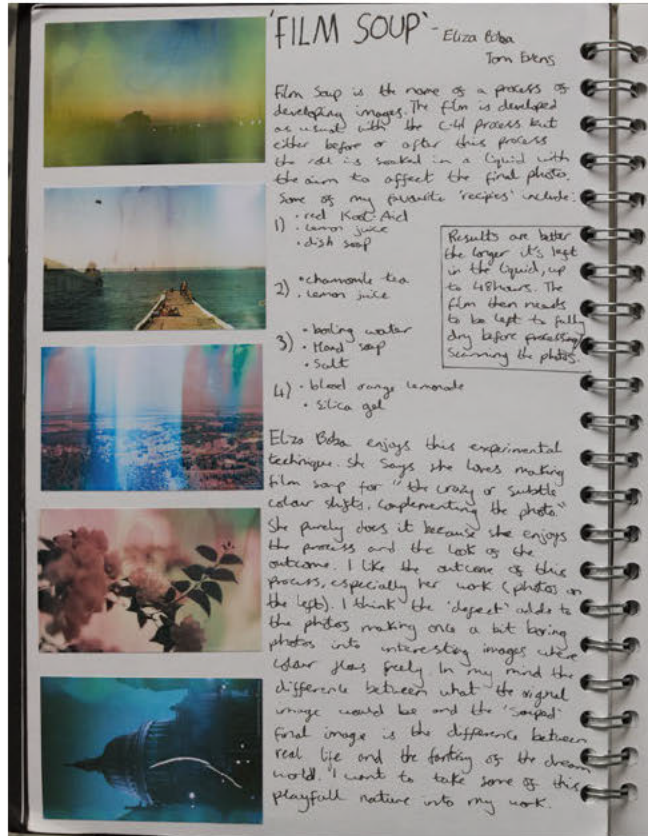 'FILM SOUP' - Eliza Boba
Tom Evens
Film Soup is the name of a process of
developing images. The film is developed
as usual with the C-41 process but
either before or after this process
the roll is soaked in a liquid with
the aim to affect the final photo.
Some of my favourite 'recipies' include:
1) • red Kool-Aid
• lemon juice
• dish soap
2) • chamomile tea
• lemon juice
3) • boiling water
• Hand soap
• Salt
4) • blood orange lemonade
• silica gel
Results are better
the longer it's left
in the liquid, up
to 48 hours. The
film then needs
to be left to fully
dry before processing/
scanning the photos.
Eliza Boba enjoys this experimental
technique. She says she loves making
film soup for "the crazy or subtle
colour shifts, complementing the photo."
She purely does it because she enjoys
the process and the look of the
outcome. I like the outcome of this
process, especially her work (photos on
the left). I think the 'defect' adds to
the photos making once a bit boring
photos into interesting images where
colour flows freely. In my mind the
difference between what the orignal
image would be and the 'souped'
final image is the difference between
real life and the fantasy of the dream
world. I want to take some of this
playfull nature into my work.